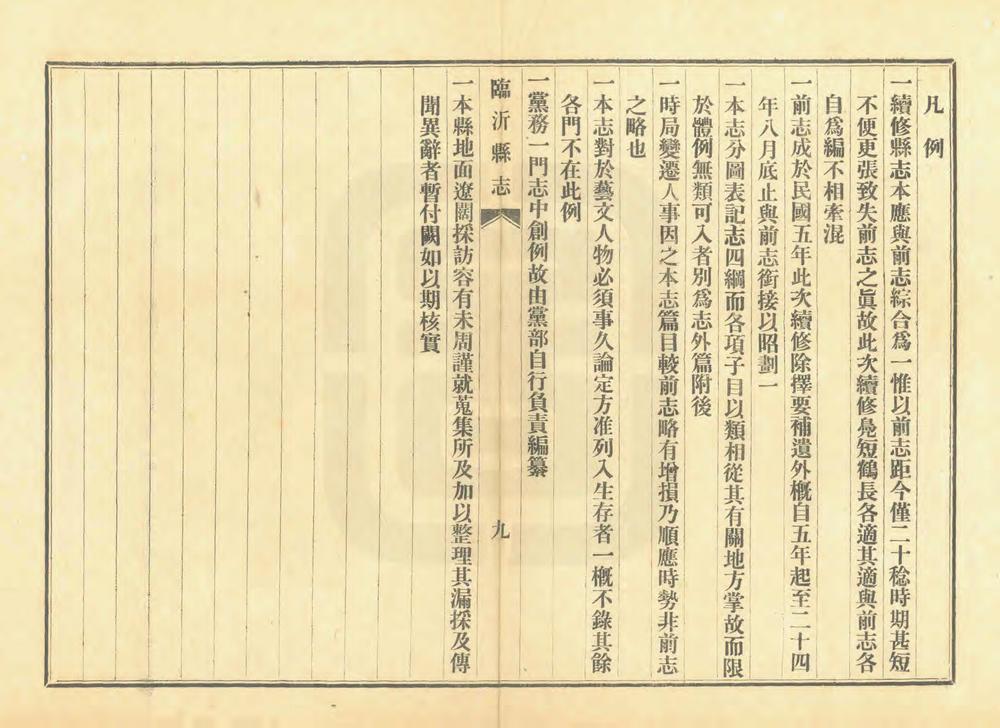 凡例
一續修縣志本應與前志綜合爲一惟以前志距今僅二十稔時期甚短
不便更張致失前志之眞故此次續修鳧短鶴長各適其適與前志各
自爲編不相牽混
一前志成於民國五年此次續修除擇要補遺外槪自五年起至二十四
年八月底止與前志銜接以昭劃一
一本志分圖表記志四綱而各項子目以類相從其有關地方掌故而限
於體例無類可入者別爲志外篇附後
一時局變遷人事因之本志篇目較前志略有增損乃順應時勢非前志
之略也
一本志對於藝文人物必須事久論定方准列入生存者一槪不錄其餘
各門不在此例
一黨務一門志中創例故由黨部自行負責編纂
臨沂縣志 九
一本縣地面遼闊採訪容有未周謹就蒐集所及加以整理其漏採及傳
聞異辭者暫付闕如以期核實